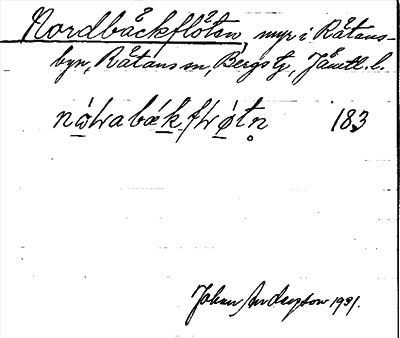 Nordbäckflöten, myr i Råtans-
byn, Råtans sn, Bergs tg, Jämtl. l.
nώɫrabækfɫǿtn̥ 183
Johan Anderzson 1931.